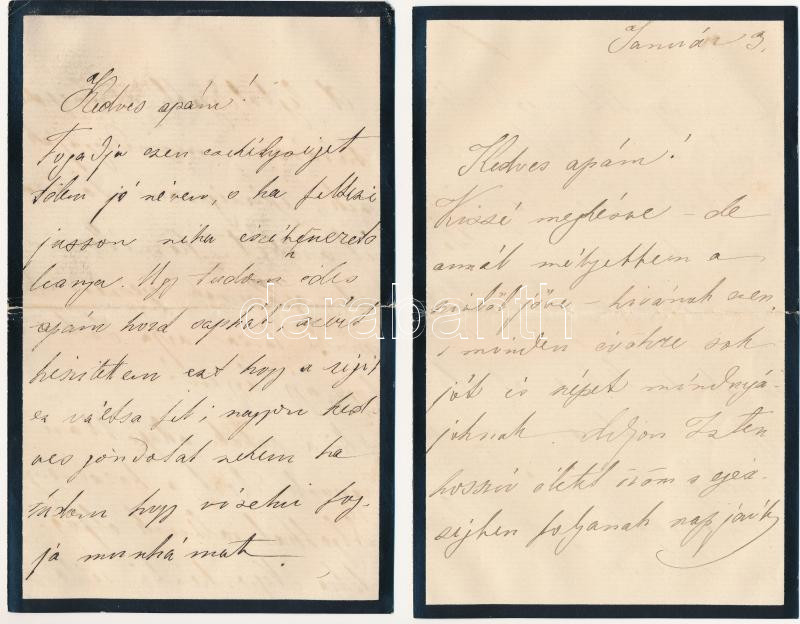 Kedves apám!
Fogadja ezen csekélységet
tőlem jó néven, s ha felteszi
jusson néha eszébe szerető
leánya. Úgy tudom édes
apám hord sapkát, azért
készítettem ezt hogy a régit
ez váltsa fel; nagyon ked-
ves gondolat nekem ha
tudom hogy viselni fog-
ja munkámat.
Január 3.
Kedves apám!
Kissé megkésve – de
annál mélyebben a
szívből jőve – kívánok ezen
s minden évekre sok
jót és szépet mindnyá-
joknak. Adjon Isten
hosszú életet öröm s egész-
ségben folyanak napjaik
darabanth